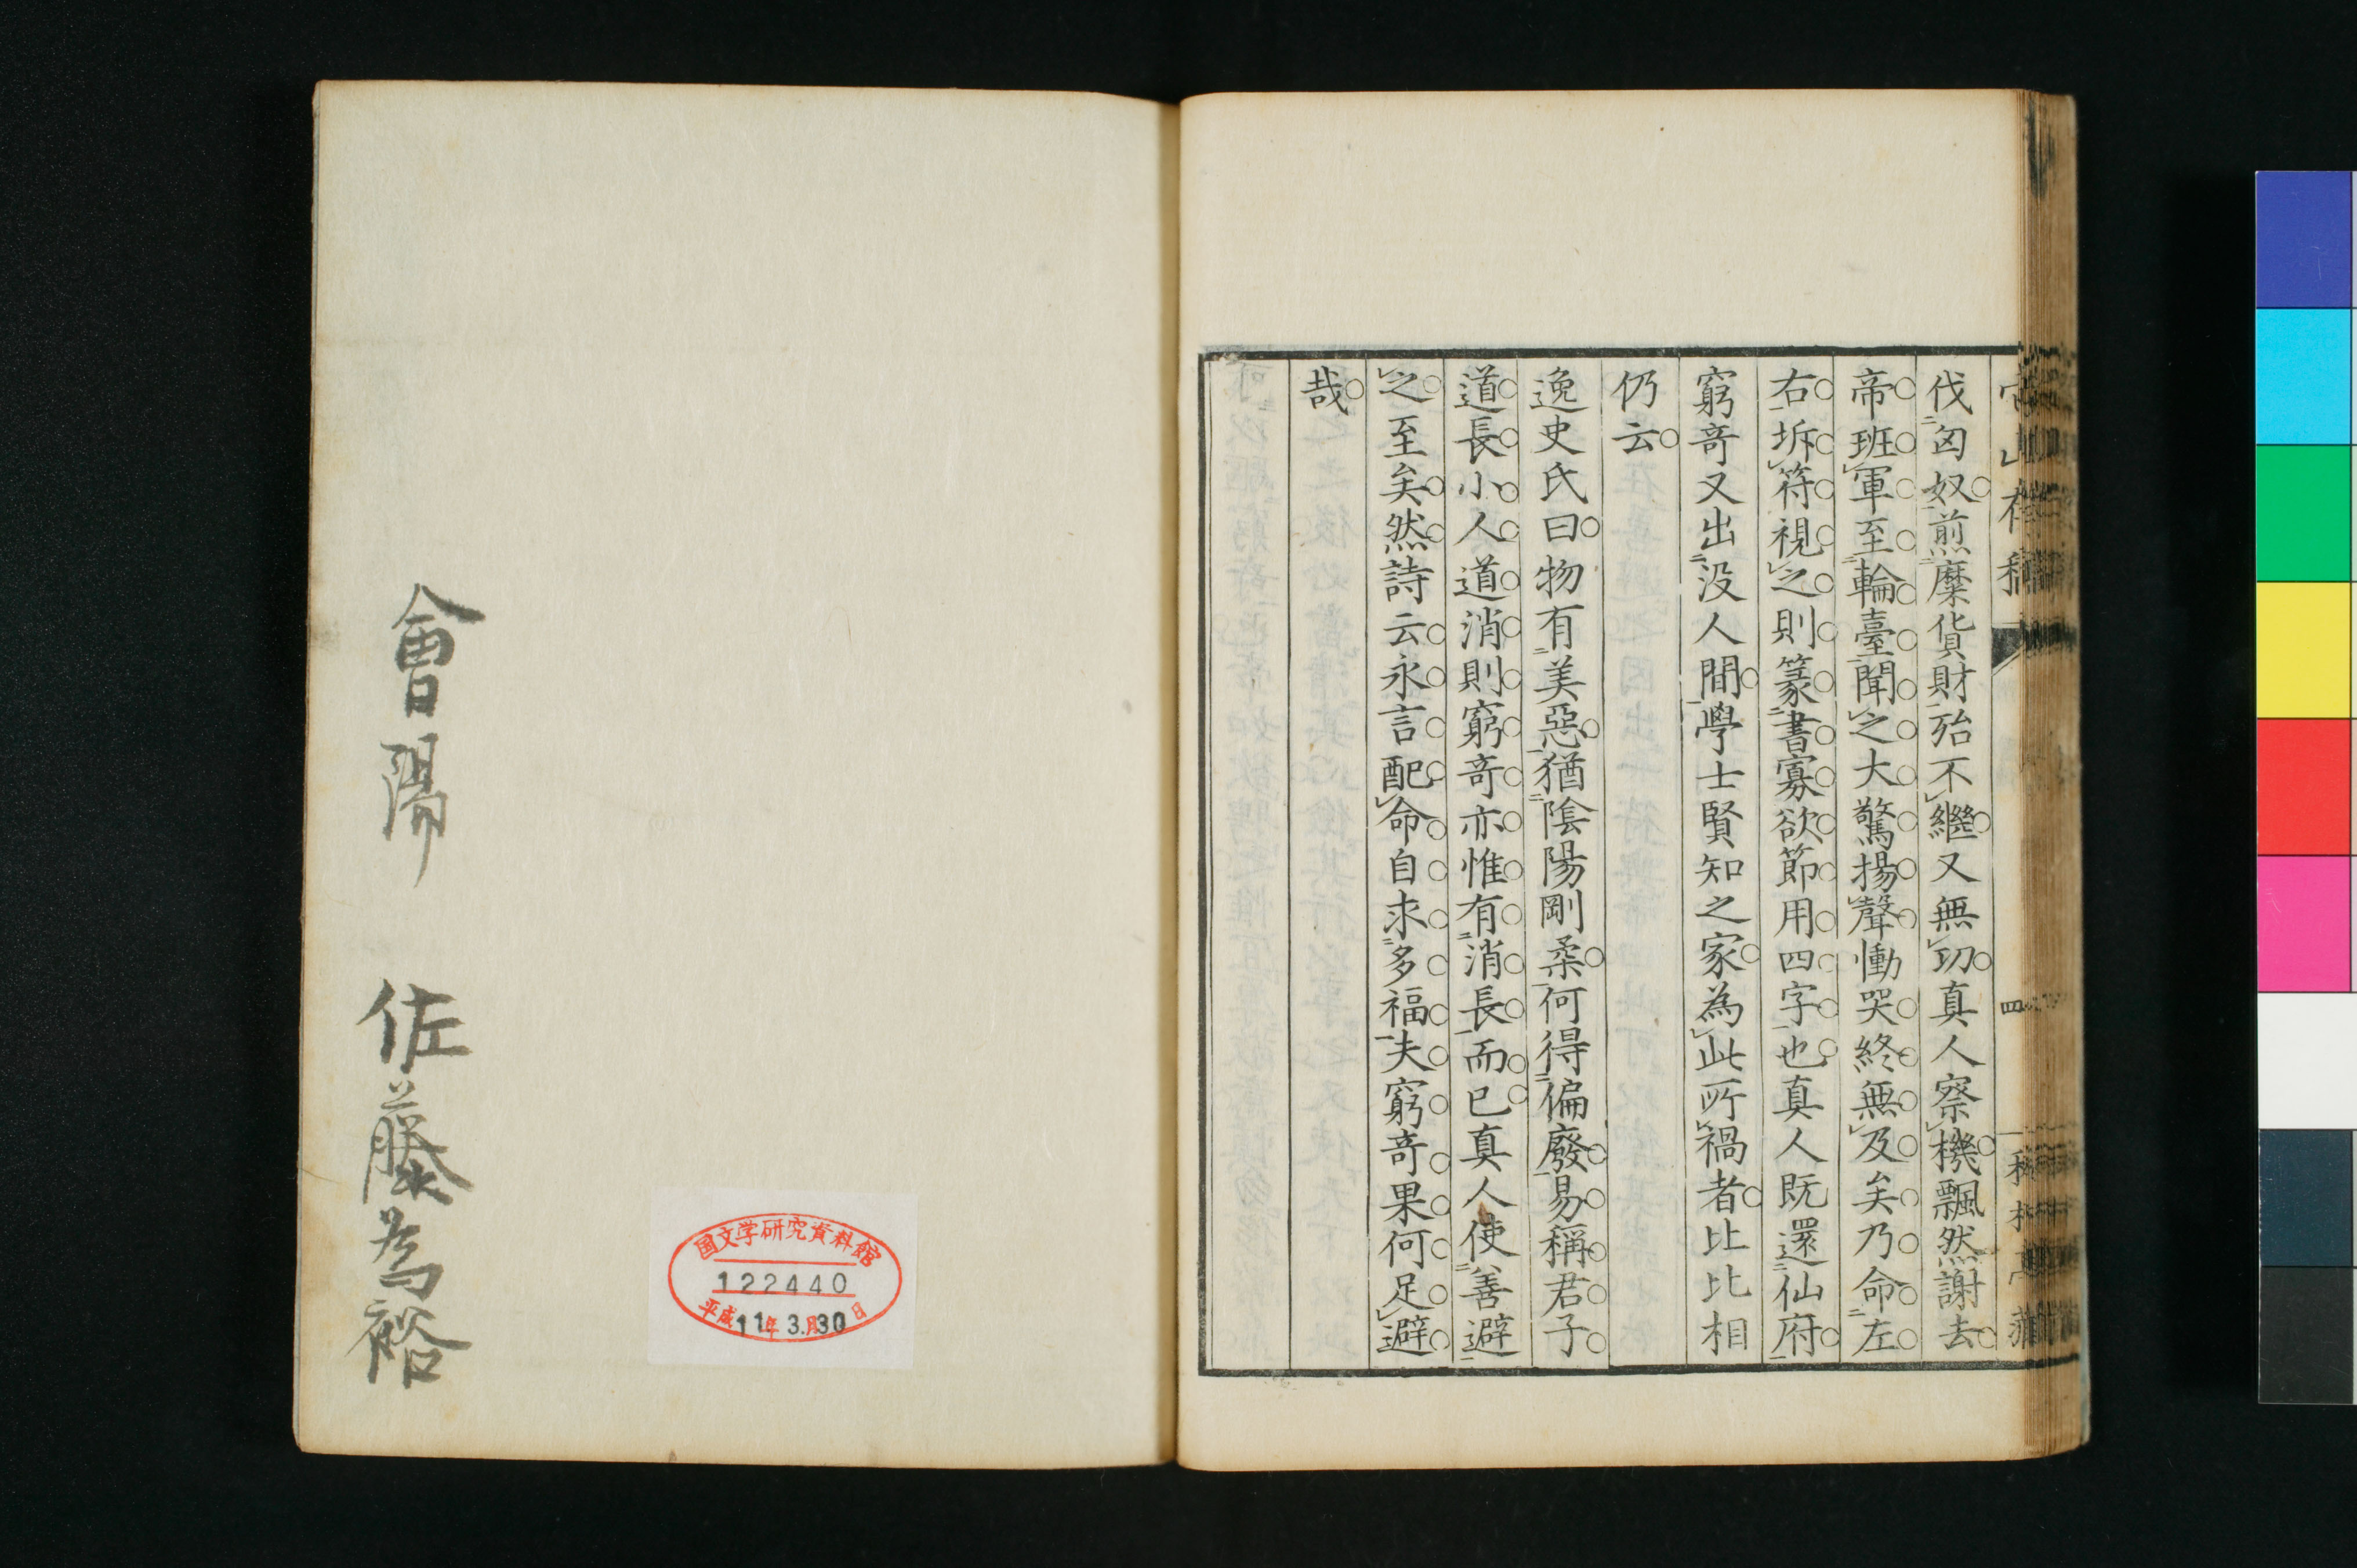 伐匈奴煎糜貨財殆不繼又無功真人察機飄然謝去
帝班軍至輪臺聞之大驚揚聲慟哭終無及矣乃命左
右拆符視之則篆書寡欲節用四字也真人既還仙府
窮奇又出没人間學士賢知之家為此所禍者比比相
仍云
逸史氏曰物有美惡猶陰陽剛柔何得偏廢易稱君子
道長小人道消則窮奇亦惟有消長而已真人使善避
之至矣然詩云永言配命自求多福夫窮奇果何足避
哉
四
會陽 佐藤為裕
国文学研究資料館
122440
平成11年3月30日